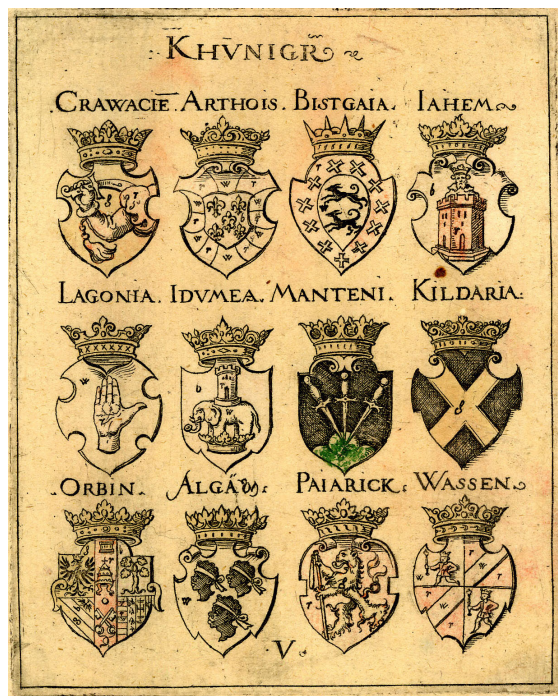 KHVNIGR̃
CRAWACIĒ. ARTHOIS. BISTGAIA. IAHEM
LAGONIA. IDVMEA. MANTENI. KILDARIA.
ORBIN. PAIARICK. WASSEN
V.